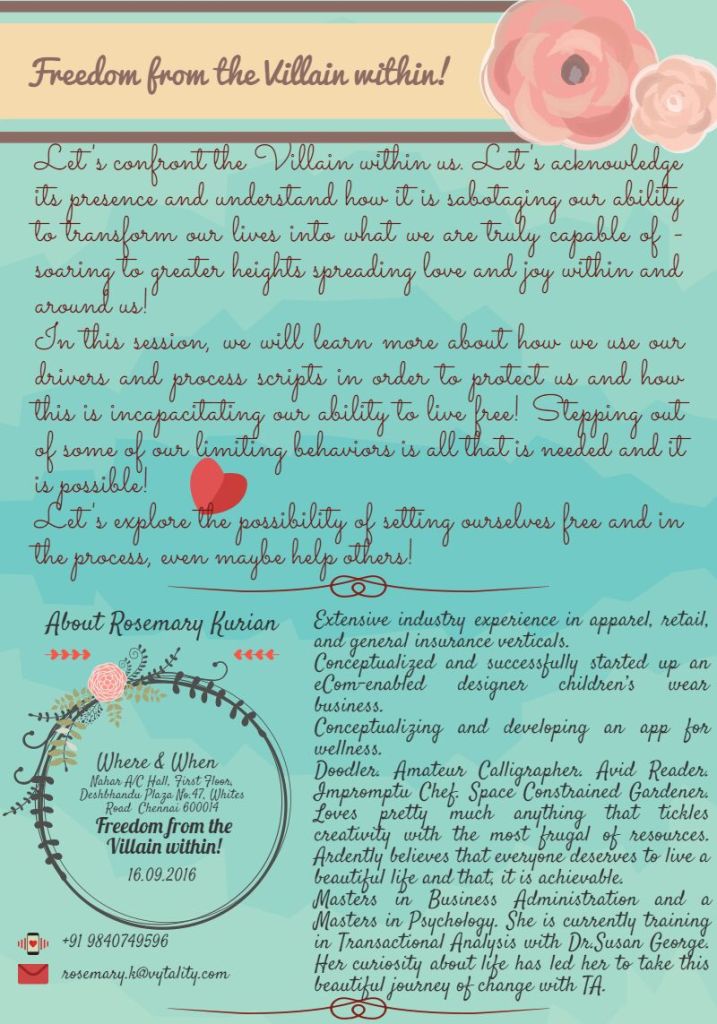 Freedom from the Villain within!
Let's confront the Villain within us. Let's acknowledge
its presence and understand how it is sabotaging our ability
to transform our lives into what we are truly capable of -
soaring to greater heights spreading love and joy within and
around us!
In this session, we will learn more about how we use our
drivers and process scripts in order to protect us and how
this is incapacitating our ability to live free! Stepping out
of some of our limiting behaviors is all that is needed and it
is possible!
Let's explore the possibility of setting ourselves free and in
the process, even maybe help others!
About Rosemary Kurian
Where & When
Nahar A/C Hall, First Floor,
Deshbhandu Plaza No.47, Whites
Road Chennai 600014
Freedom from the
Villain within!
16.09.2016
+91 9840749596
rosemary.k@vytality.com
Extensive industry experience in apparel, retail,
and general insurance verticals.
Conceptualized and successfully started up an
eCom-enabled designer children's wear
business.
Conceptualizing and developing an app for
wellness.
Doodler. Amateur Calligrapher. Avid Reader.
Impromptu Chef. Space Constrained Gardener.
Loves pretty much anything that tickles
creativity with the most frugal of resources.
Ardently believes that everyone deserves to live a
beautiful life and that, it is achievable.
Masters in Business Administration and a
Masters in Psychology. She is currently training
in Transactional Analysis with Dr.Susan George.
Her curiosity about life has led her to take this
beautiful journey of change with TA.